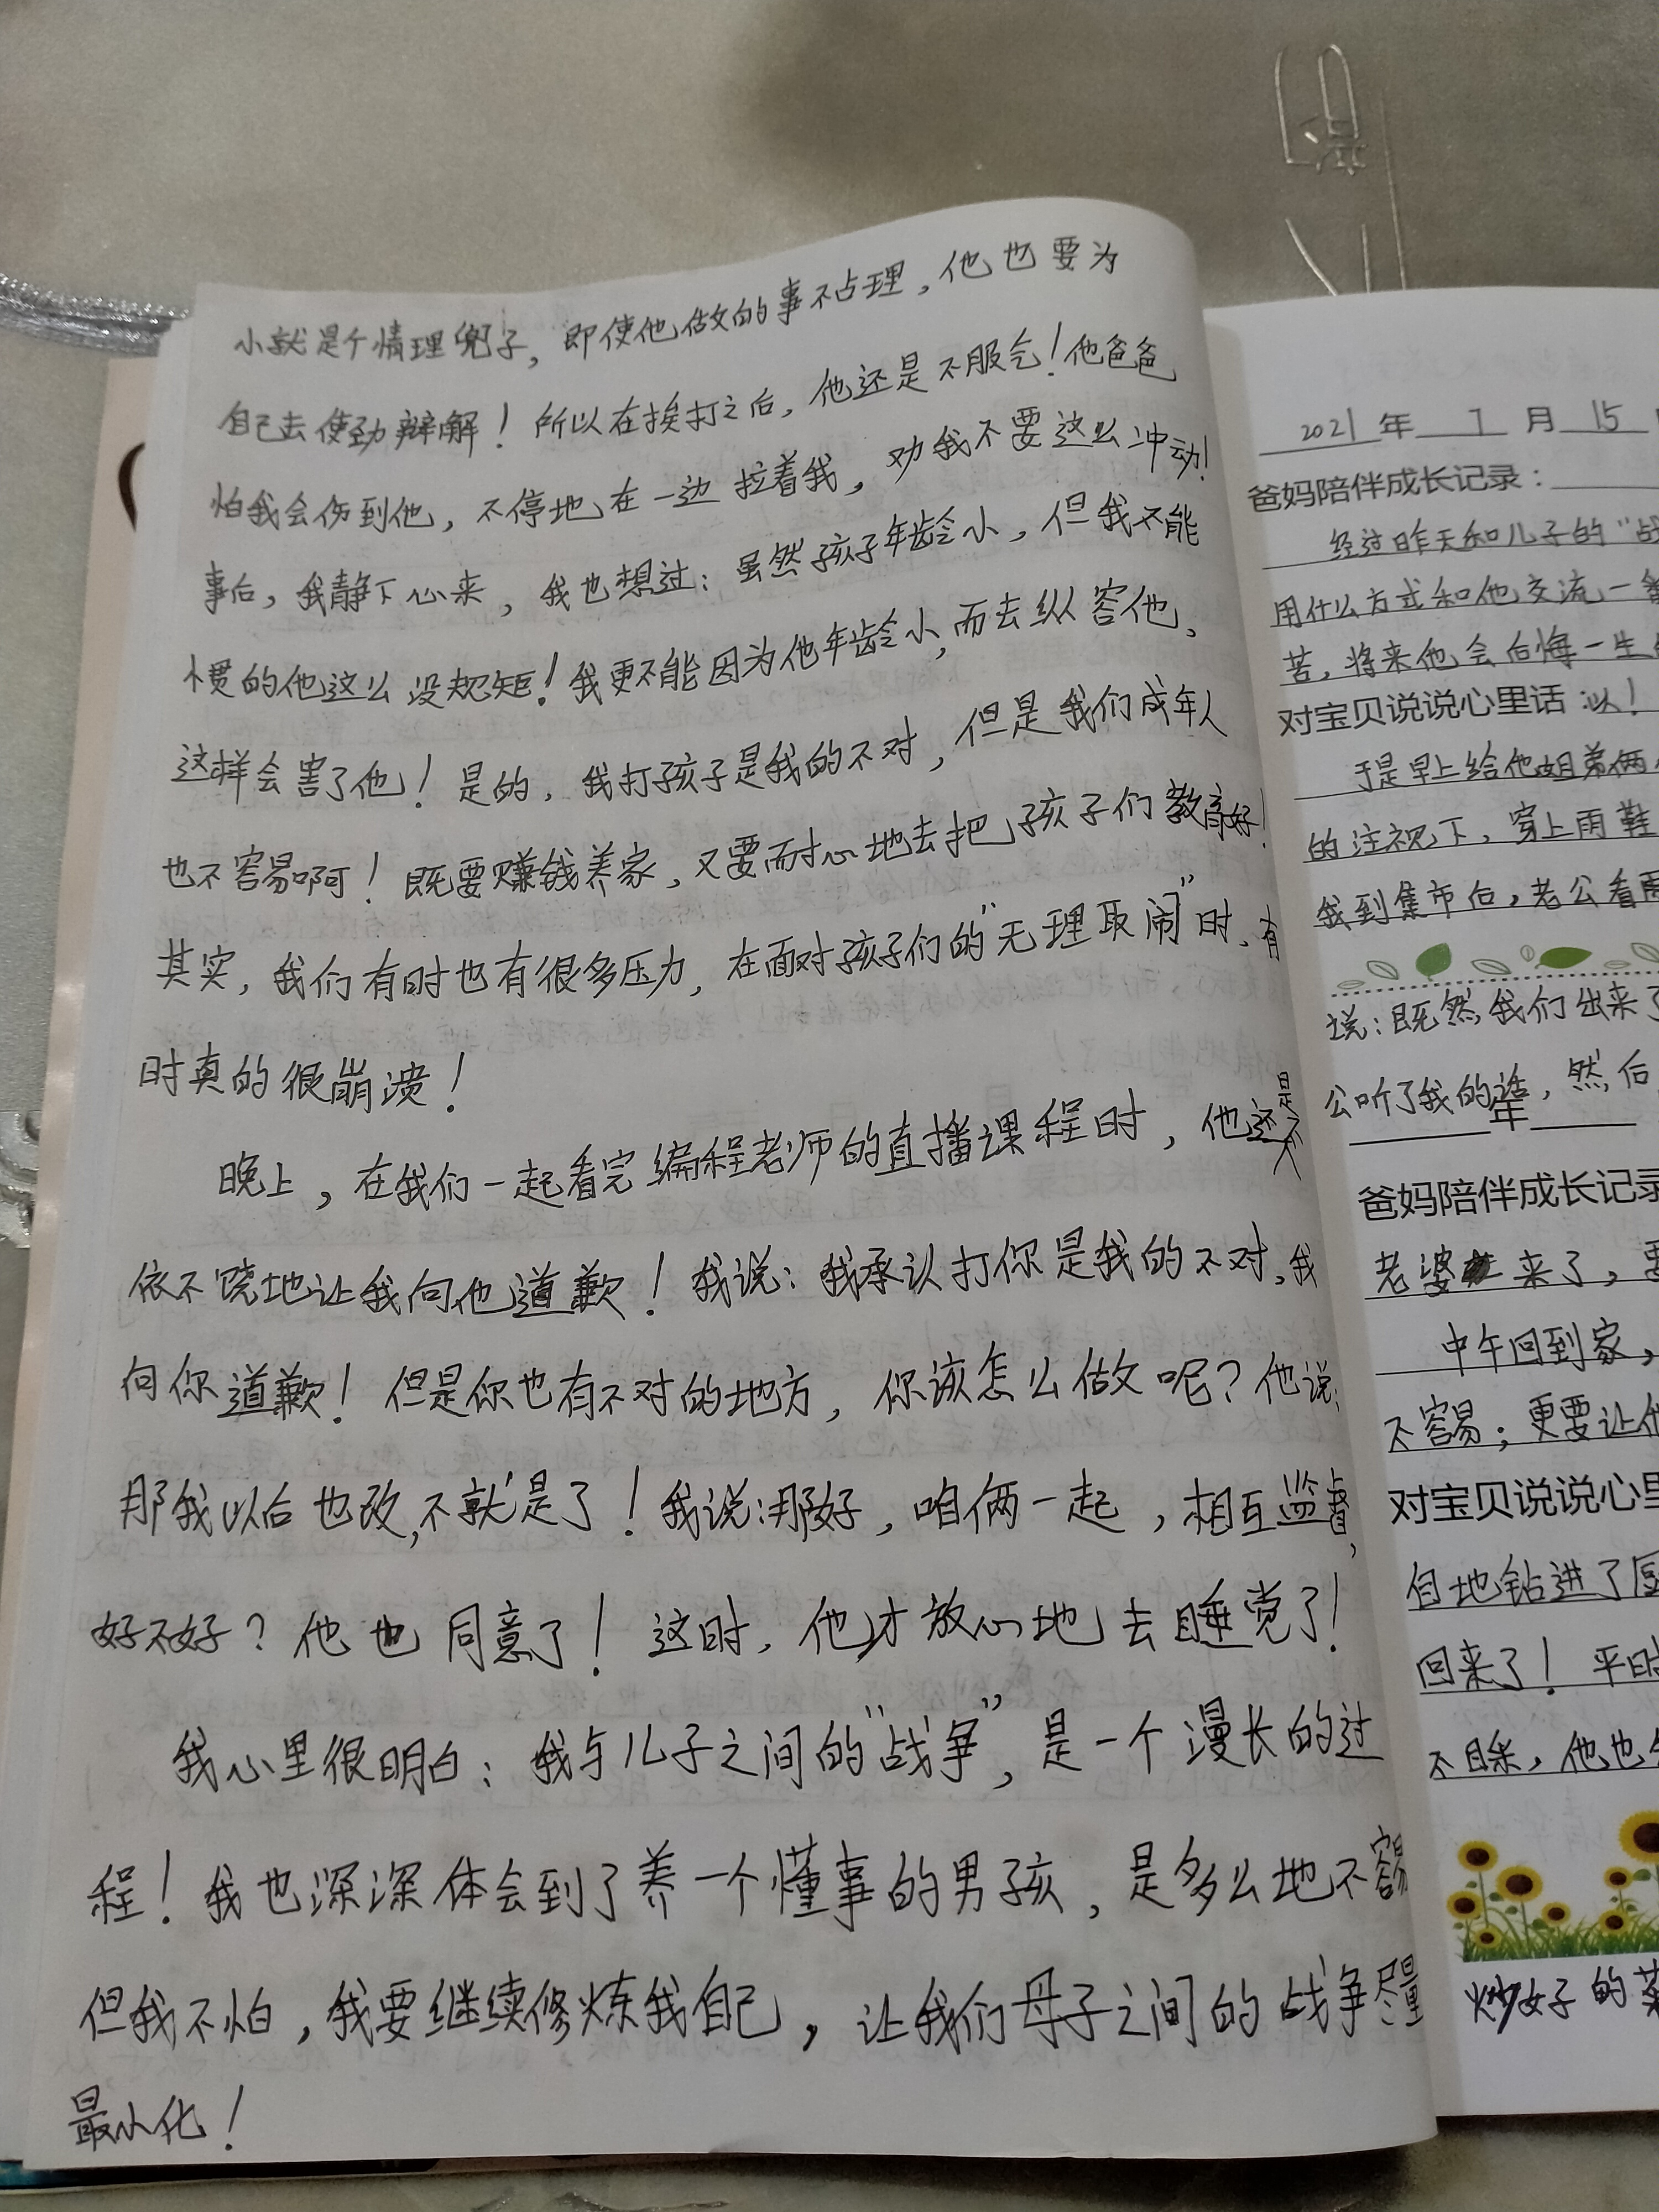 小就是个情理兜子，即使他做的事不占理，他也要为
自己去使劲辩解！所以在挨打之后，他还是不服气！他爸爸
怕我会伤到他，不停地在一边拉着我，劝我不要这么冲动！
事后，我静下心来，我也想过：虽然孩子年龄小，但我不能
惯的他这么没规矩！我更不能因为他年龄小，而去纵容他，
这样会害了他！是的，我打孩子是我的不对，但是我们成年人
也不容易啊！既要赚钱养家，又要耐心地去把孩子们教育好！
其实，我们有时也有很多压力，在面对孩子们的"无理取闹"时，有
时真的很崩溃！
晚上，在我们一起看完编程老师的直播课程时，他还是不
依不饶地让我向他道歉！我说：我承认打你是我的不对，我
向你道歉！但是你也有不对的地方，你该怎么做呢？他说：
那我以后也改，不就是了！我说：那好，咱俩一起，相互监督，
好不好？他也同意了！这时，他才放心地去睡觉了！
我心里很明白：我与儿子之间的"战争"，是一个漫长的过
程！我也深深体会到了养一个懂事的男孩，是多么地不容易
但我不怕，我要继续修炼我自己，让我们母子之间的战争尽量
最小化！
2021年7月15
爸妈陪伴成长记录：
经过昨天和儿子的"战
用什么方式和他交流一番
苦，将来他会后悔一生
对宝贝说说心里话：以！
于是早上给他姐弟俩
的注视下，穿上雨鞋
我到集市后，老公看
说：既然我们出来了
公听了我的话，然后
年
爸妈陪伴成长记录
老婆来了，要
中午回到家，
不容易；更要让他
对宝贝说说心里
自地钻进了厨
回来了！平时
不睬，他也
炒好的菜